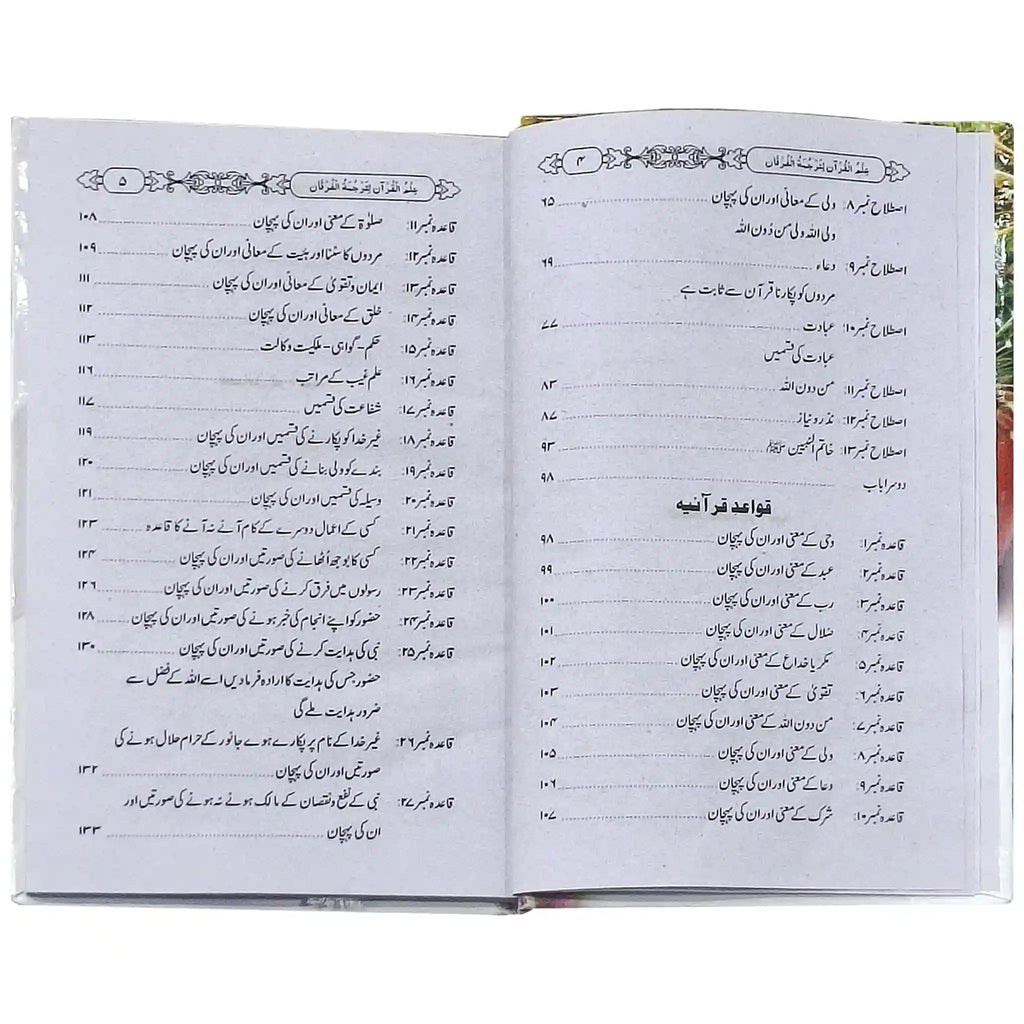 عِلْمُ الْقُرْآن لِتَرْجُمَةُ الْفُرْقَان ۴
اصطلاح نمبر۸: ولی کے معانی اور ان کی پہچان ۶۵
ولی اللہ ولی من دُون اللہ
اصطلاح نمبر۹: دعاء ۶۹
مردوں کو پکارنا قرآن سے ثابت ہے
اصطلاح نمبر۱۰: عبادت ۷۷
عبادت کی قسمیں
اصطلاح نمبر۱۱: من دون اللہ ۸۳
اصطلاح نمبر۱۲: نذر و نیاز ۸۷
اصطلاح نمبر۱۳: خاتم النبیین ﷺ ۹۳
دوسرا باب ۹۸
قواعد قرآنیہ
قاعدہ نمبر۱: وحی کے معنی اور ان کی پہچان ۹۸
قاعدہ نمبر۲: عبد کے معنی اور ان کی پہچان ۹۹
قاعدہ نمبر۳: رب کے معنی اور ان کی پہچان ۱۰۰
قاعدہ نمبر۴: ضلال کے معنی اور ان کی پہچان ۱۰۱
قاعدہ نمبر۵: مکر یا خداع کے معنی اور ان کی پہچان ۱۰۲
قاعدہ نمبر۶: تقویٰ کے معنی اور ان کی پہچان ۱۰۳
قاعدہ نمبر۷: من دون اللہ کے معنی اور ان کی پہچان ۱۰۴
قاعدہ نمبر۸: ولی کے معنی اور ان کی پہچان ۱۰۵
قاعدہ نمبر۹: دعا کے معنی اور ان کی پہچان ۱۰۶
قاعدہ نمبر۱۰: شرک کے معنی اور ان کی پہچان ۱۰۷
عِلْمُ الْقُرْآن لِتَرْجُمَةُ الْفُرْقَان ۵
قاعدہ نمبر۱۱: صلوٰۃ کے معنی اور ان کی پہچان ۱۰۸
قاعدہ نمبر۱۲: مردوں کا سننا اور میت کے معانی اور ان کی پہچان ۱۰۹
قاعدہ نمبر۱۳: ایمان و تقویٰ کے معانی اور ان کی پہچان ۱۱۱
قاعدہ نمبر۱۴: خلق کے معانی اور ان کی پہچان ۱۱۲
قاعدہ نمبر۱۵: حکم-گواہی-ملکیت وکالت ۱۱۳
قاعدہ نمبر۱۶: علم غیب کے مراتب ۱۱۶
قاعدہ نمبر۱۷: شفاعت کی قسمیں ۱۱۷
قاعدہ نمبر۱۸: غیر خدا کو پکارنے کی قسمیں اور ان کی پہچان ۱۱۹
قاعدہ نمبر۱۹: بندے کو ولی بنانے کی قسمیں اور ان کی پہچان ۱۲۰
قاعدہ نمبر۲۰: وسیلہ کی قسمیں اور ان کی پہچان ۱۲۱
قاعدہ نمبر۲۱: کسی کے اعمال دوسرے کے کام آنے نہ آنے کا قاعدہ ۱۲۳
قاعدہ نمبر۲۲: کسی کا بوجھ اُٹھانے کی صورتیں اور ان کی پہچان ۱۲۴
قاعدہ نمبر۲۳: رسولوں میں فرق کرنے کی صورتیں اور ان کی پہچان ۱۲۶
قاعدہ نمبر۲۴: حضور کو اپنے انجام کی خبر ہونے کی صورتیں اور ان کی پہچان ۱۲۸
قاعدہ نمبر۲۵: نبی کی ہدایت کرنے کی صورتیں اور ان کی پہچان ۱۳۰
حضور جس کی ہدایت کا ارادہ فرمادیں اسے اللہ کے فضل سے
ضرور ہدایت ملے گی
قاعدہ نمبر۲۶: غیر خدا کے نام پر پکارے ہوے جانور کے حرام حلال ہونے کی
صورتیں اور ان کی پہچان ۱۳۲
قاعدہ نمبر۲۷: نبی کے نفع و نقصان کے مالک ہونے نہ ہونے کی صورتیں اور
ان کی پہچان ۱۳۳